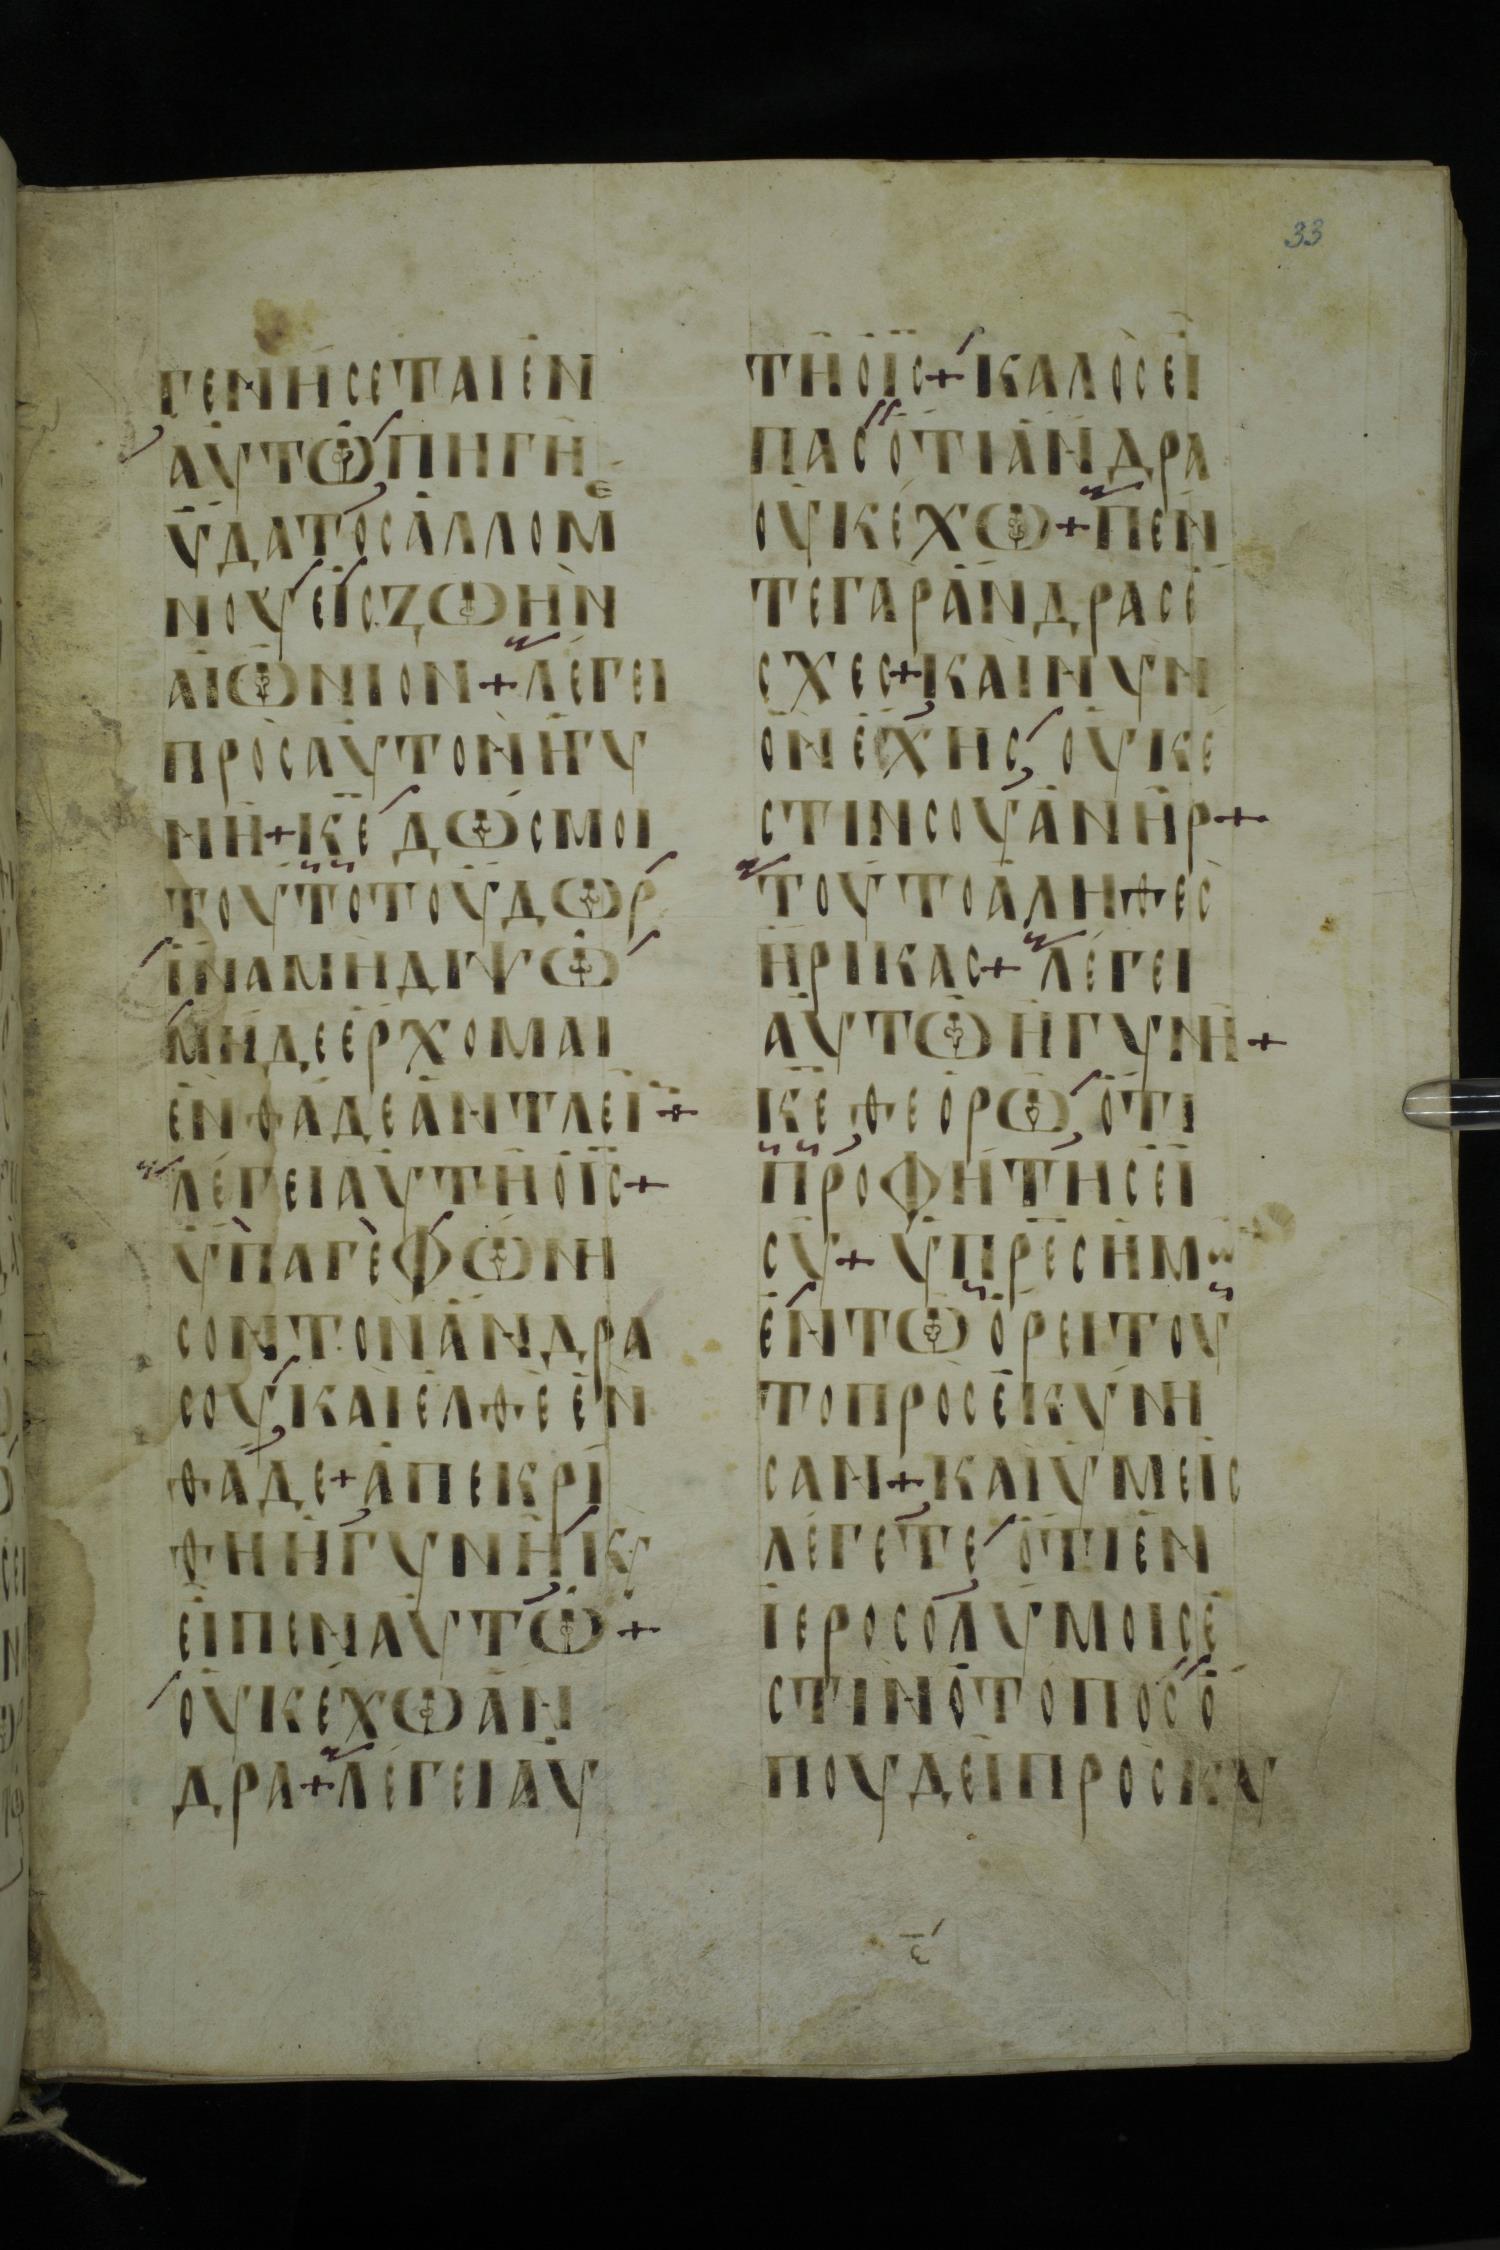 33
ΓΕΝΗСΕΤΑΙΕΝ
ΑΥΤΩΠΗΓΗ
ΥΔΑΤΟСΑΛΛΟΜΕ
ΝΟΥΕΙСΖΩΗΝ
ΑΙΩΝΙΟΝ+ΛΕΓΕΙ
ΠΡΟСΑΥΤΟΝΗΓΥ
ΝΗ+ΚΕΔΩСΜΟΙ
ΤΟΥΤΟΤΟΥΔΩΡ
ΙΝΑΜΗΔΙΨΩ
ΜΗΔΕΕΡΧΟΜΑΙ
ΕΝΘΑΔΕΑΝΤΛΕΙ+
ΛΕΓΕΙΑΥΤΗΟΙС+
ΥΠΑΓΕΦΩΝΗ
СΟΝΤΟΝΑΝΔΡΑ
СΟΥΚΑΙΕΛΘΕΕΝ
ΘΑΔΕ+ΑΠΕΚΡΙ
ΘΗΗΓΥΝΗΚ
ΕΙΠΕΝΑΥΤΩ+
ΟΥΚΕΧΩΑΝ
ΔΡΑ+ΛΕΓΕΙΑΥ
ΤΗΟΙС+ΚΑΛΟСΕΙ
ΠΑСΟΤΙΑΝΔΡΑ
ΟΥΚΕΧΩ+ΠΕΝ
ΤΕΓΑΡΑΝΔΡΑСΕ
СΧΕС+ΚΑΙΝΥΝ
ΟΝΕΧΗСΟΥΚΕ
СΤΙΝСΟΥΑΝΗΡ+
ΤΟΥΤΟΑΛΗΘΕС
ΗΡΙΚΑС+ΛΕΓΕΙ
ΑΥΤΩΗΓΥΝΗ+
ΚΕΘΕΟΡΩΟΤΙ
ΠΡΟΦΗΤΗСΕΙ
СΥ+ΥΠΡΕСΗΜ
ΕΝΤΩΟΡΕΙΤΟΥ
ΤΟΠΡΟСΕΚΥΝΗ
СΑΝ+ΚΑΙΥΜΕΙС
ΛΕΓΕΤΕΟΤΙΕΝ
ΙΕΡΟСΟΛΥΜΟΙСΕ
СΤΙΝΟΤΟΠΟСΟ
ΠΟΥΔΕΙΠΡΟСΚΥ